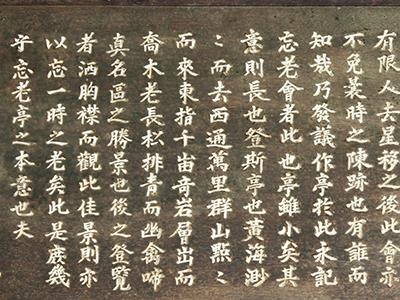 有限人去星移之後此會亦
不免衰時之陳跡也有誰而
知哉乃發議作亭於此永記
忘老會者此也亭雖小矣其
意則長也登斯亭也黃海渺
〻而去西通萬里群山點〻
而來東指千宙奇岩層出而
喬木老長松排青而幽禽啼
真名區之勝景也後之登覽
者洒胸襟而觀此佳景則亦
以忘一時之老矣此是庶幾
乎忘老亭之本意也夫